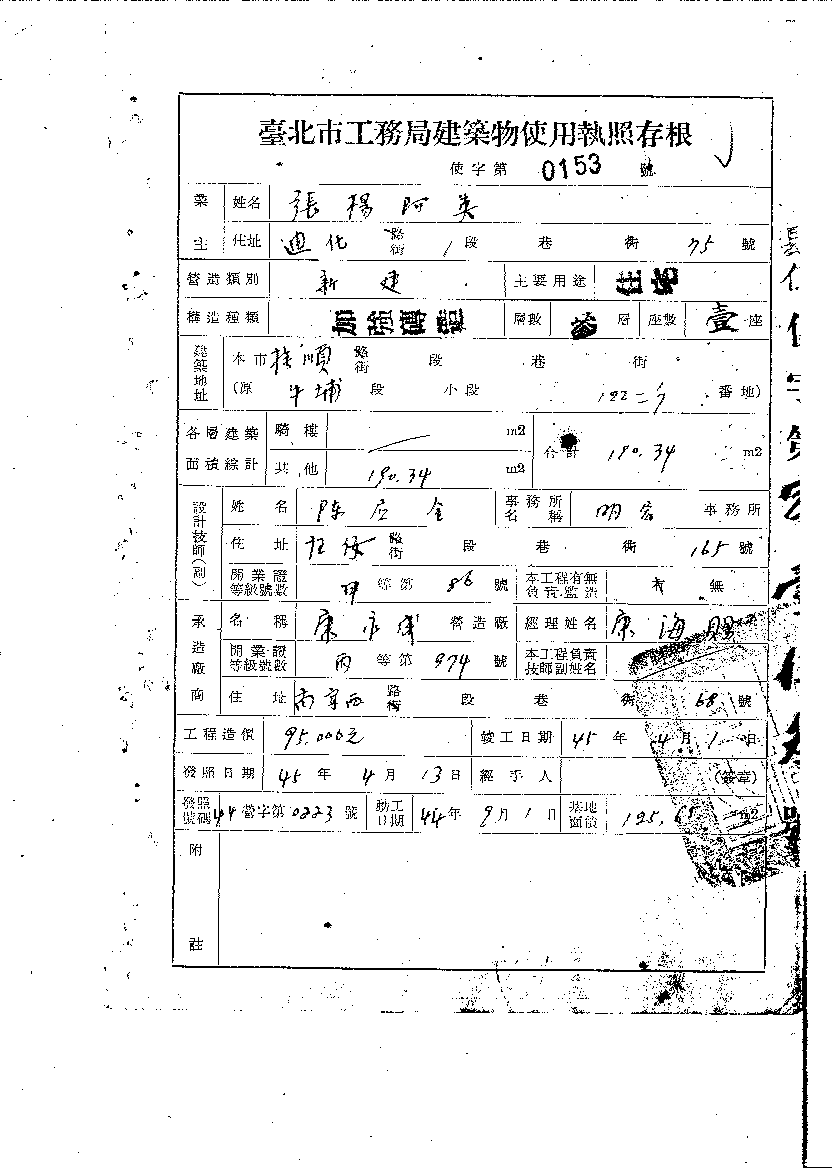 臺北市工務局建築物使用執照存根
使字第 0153 號
業主 姓名 張楊阿英
住址 迪化街 1 段 巷 衖 75 號
營造類別 新建 主要用途 住宅
構造種類 加強磚造 層數 層 座數 壹 座
建築地址 本市 撫順 路街 段 巷 衖
(原 牛埔 段 小段 122 番地)
各層建築面積綜計 騎樓 m2 合計 190.34 m2
其他 190.34 m2
設計技師(副) 姓名 陳 金 事務所名稱 明 事務所
住址 路街 段 巷 衖 165 號
開業證等級號數 甲 等第 86 號 本工程有無負責監造 有 無
承造廠商 名稱 康 營造廠 經理姓名 康海
開業證等級號數 丙 等第 974 號 本工程負責技師副姓名
住址 南京西 路街 段 巷 衖 68 號
工程造價 95.000元 竣工日期 45 年 4 月 1 日
發照日期 45 年 4 月 13 日 經手人 (簽章)
發照號碼 44 營字第 0223 號 動工日期 44 年 9 月 1 日 基地面積 125.65 m2
附註